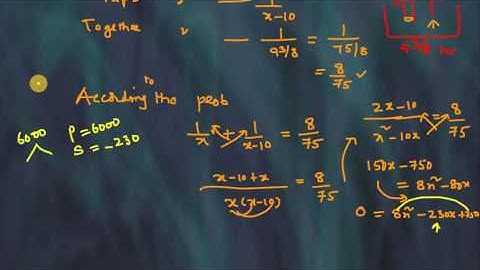 1/(x-10)
Together — 1/(9 3/8) = 1/(75/8)
= 8/75 ✓
9 3/8 hr
According to the prob
6000 P = 6000
S = -230
1/x + 1/(x-10) = 8/75
(x-10+x)/(x(x-10)) = 8/75
(2x-10)/(x²-10x) = 8/75
150x - 750
= 8x² - 80x
0 = 8x² - 230x + 750